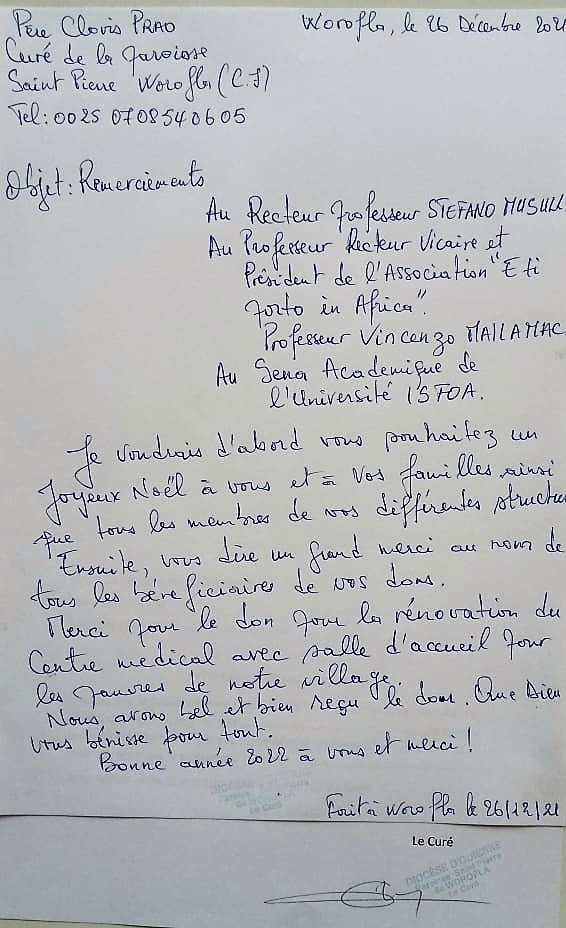 Père Clovis PRAO
Worofla, le 26 Décembre 2021
Curé de la Paroisse
Saint Pierre Worofla (C.I)
Tel: 0025 0708540605
Objet: Remerciements
Au Recteur Professeur STEFANO MUSULL
Au Professeur Recteur Vicaire et
Président de l'Association "E ti
porto in Africa".
Professeur Vincenzo MALLAMAC
Au Sena Academique de
l'Université I'SFOA.
Je voudrais d'abord vous souhaitez un
Joyeux Noël à vous et à vos familles ainsi
que tous les membres de vos différentes structu
Ensuite, vous dire un grand merci au nom de
tous les bénéficiaires de vos dons.
Merci pour le don pour la rénovation du
Centre medical avec salle d'accueil pour
les pauvres de notre village.
Nous avons bel et bien reçu le don. Que Dieu
vous bénisse pour tout.
Bonne année 2022 à vous et merci!
Fait à Worofla le 26/12/21
Le Curé
DIOCÈSE D'ODIENNE
Paroisse Saint Pierre
de WOROFLA
Le Curé